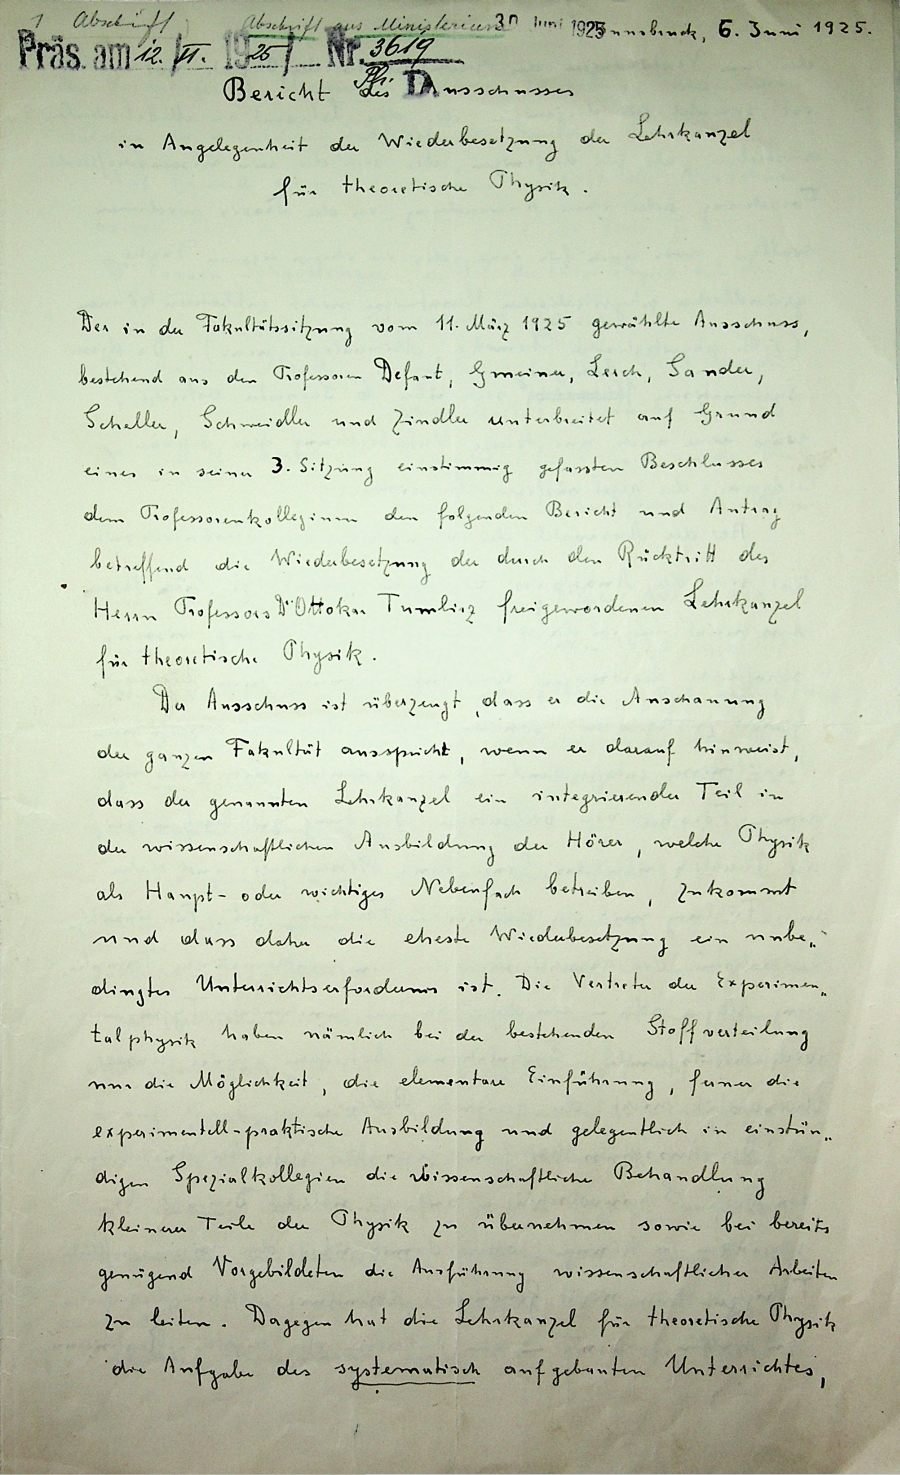 1 Abschrift
Abschrift aus Ministerium 30 Juni 1925
Innsbruck, 6. Juni 1925.
Präs. am 12./VI. 1925/ Nr. 3619
Phi. D
Bericht des Ausschusses
in Angelegenheit der Wiederbesetzung der Lehrkanzel
für theoretische Physik.
Der in der Fakultätssitzung vom 11. März 1925 gewählte Ausschuss,
bestehend aus den Professoren Defant, Gmeiner, Lerch, Sander,
Schatz, Schweidler und Zindler unterbreitet auf Grund
eines in seiner 3. Sitzung einstimmig gefassten Beschlusses
dem Professorenkollegium den folgenden Bericht und Antrag
betreffend die Wiederbesetzung der durch den Rücktritt des
Herrn Professors Dr Ottokar Tumlirz freigewordenen Lehrkanzel
für theoretische Physik.
Der Ausschuss ist überzeugt, dass er die Anschauung
der ganzen Fakultät ausspricht, wenn er darauf hinweist,
dass der genannten Lehrkanzel ein integrierender Teil in
der wissenschaftlichen Ausbildung der Hörer, welche Physik
als Haupt- oder wichtiges Nebenfach betreiben, zukommt
und dass daher die eheste Wiederbesetzung ein unbe„
dingtes Unterrichtserfordernis ist. Die Vertreter der Experimen„
talphysik haben nämlich bei der bestehenden Stoffverteilung
nur die Möglichkeit, die elementare Einführung, ferner die
experimentell-praktische Ausbildung und gelegentlich in einstün„
digen Spezialkollegien die wissenschaftliche Behandlung
kleinerer Teile der Physik zu übernehmen sowie bei bereits
genügend Vorgebildeten die Ausführung wissenschaftlicher Arbeiten
zu leiten. Dagegen hat die Lehrkanzel für theoretische Physik
die Aufgabe des systematisch aufgebauten Unterrichtes,